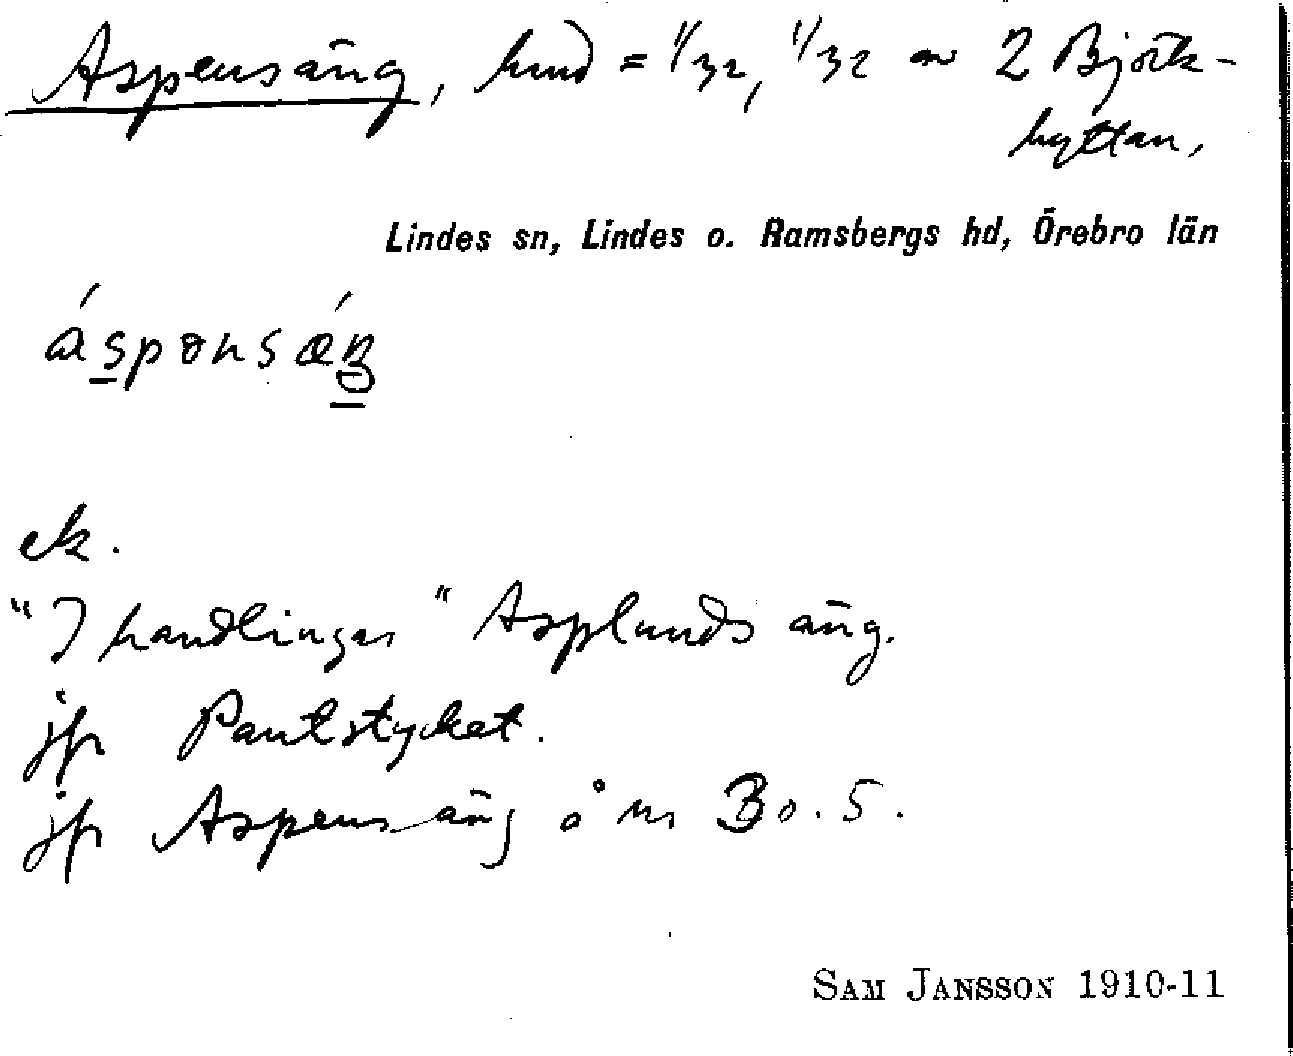 Aspensäng, hmd = 1/32, 1/32 av 2 Björk-
hyttan,
Lindes sn, Lindes o. Ramsbergs hd, Örebro län
áspənsǽŋ
ek.
"I handlingar" Asplunds äng.
jfr Pantstycket.
jfr Aspensäng å nr 30.5.
SAM JANSSON 1910-11